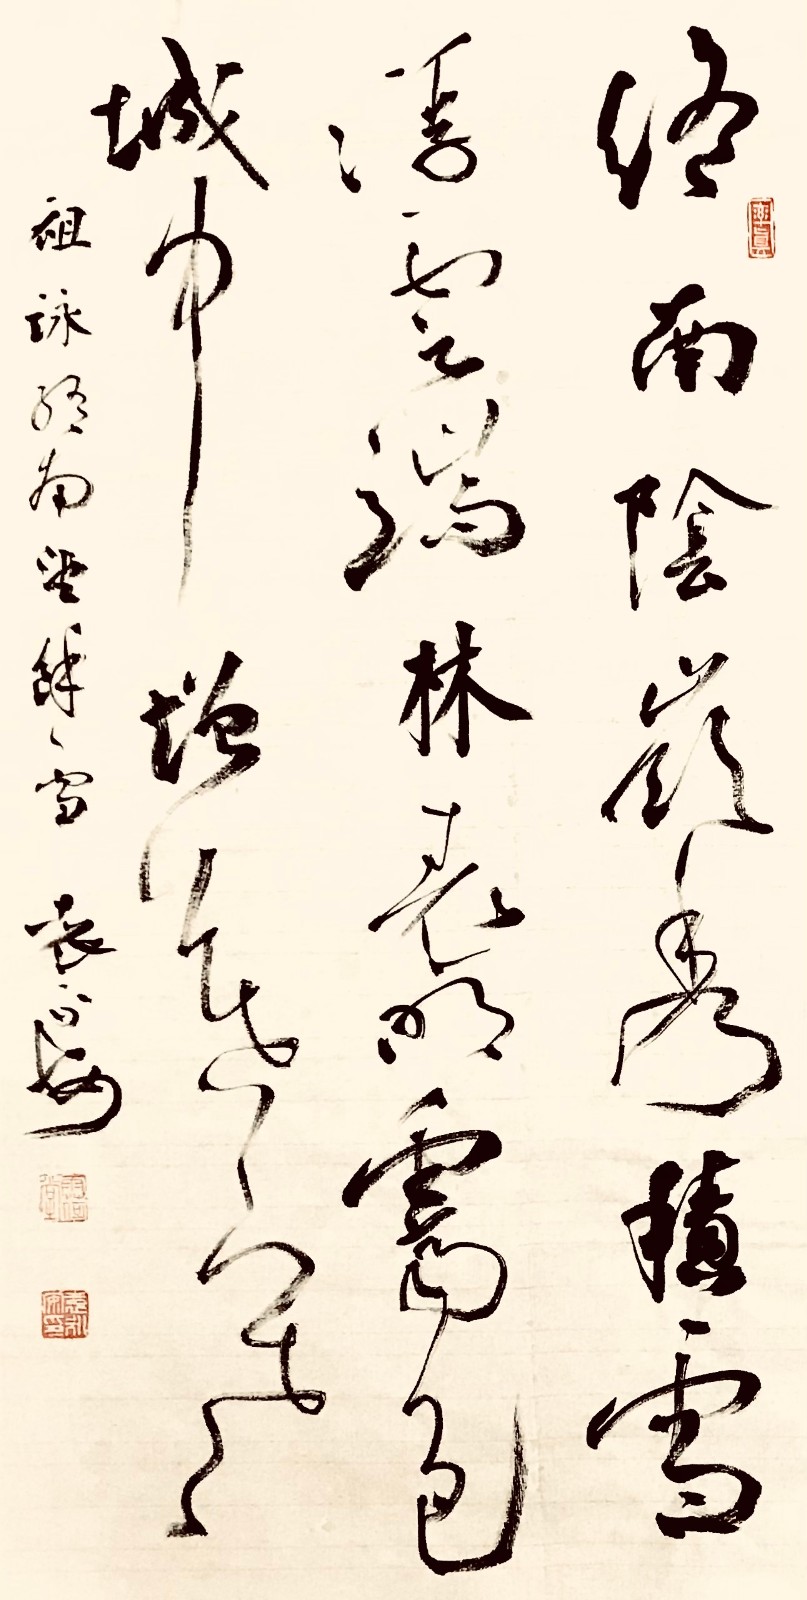 終南陰嶺秀積雪
率真
浮雲端林表明霽色
城中增暮寒
祖詠終南望餘雪 袁